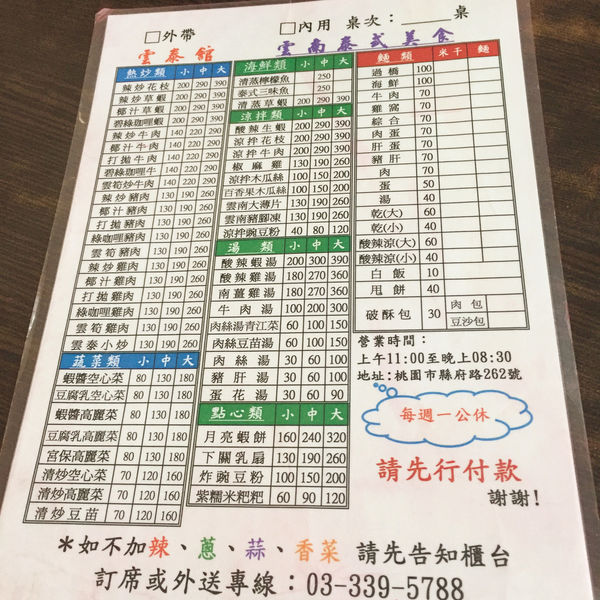 □外帶 □內用 桌次：______桌
雲泰館 雲南泰式美食
熱炒類 小 中 大
辣炒花枝 200 290 390
辣炒草蝦 200 290 390
椰汁草蝦 200 290 390
碧綠咖哩蝦 200 290 390
辣炒牛肉 140 220 290
椰汁牛肉 140 220 290
打拋牛肉 140 220 290
碧綠咖哩牛 140 220 290
雲筍炒牛肉 140 220 290
辣炒豬肉 130 190 260
椰汁豬肉 130 190 260
打拋豬肉 130 190 260
綠咖哩豬肉 130 190 260
雲筍豬肉 130 190 260
辣炒雞肉 130 190 260
椰汁雞肉 130 190 260
打拋雞肉 130 190 260
綠咖哩雞肉 130 190 260
雲筍雞肉 130 190 260
雲泰小炒 130 190 260
蔬菜類 小 中 大
蝦醬空心菜 80 130 180
豆腐乳空心菜 80 130 180
蝦醬高麗菜 80 130 180
豆腐乳高麗菜 80 130 180
宮保高麗菜 80 130 180
清炒空心菜 70 120 160
清炒高麗菜 70 120 160
清炒豆苗 70 120 160
海鮮類 小 中 大
清蒸檸檬魚 250
泰式三味魚 250
清蒸草蝦 200 290 390
涼拌類 小 中 大
酸辣生蝦 200 290 390
涼拌花枝 200 290 390
涼拌牛肉 200 290 390
椒麻雞 130 190 260
涼拌木瓜絲 100 150 200
百香果木瓜絲 100 150 200
雲南大薄片 130 190 260
雲南豬腳凍 130 190 260
涼拌豌豆粉 40 80 120
湯類 小 中 大
酸辣蝦湯 200 300 390
酸辣雞湯 180 270 360
南薑雞湯 180 270 360
牛肉湯 200 300 400
肉絲湯青江菜 60 100 150
肉絲豆苗湯 60 100 150
肉絲湯 30 60 100
豬肝湯 30 60 100
蛋花湯 30 60 90
點心類 小 中 大
月亮蝦餅 160 240 320
下關乳扇 130 190 260
炸豌豆粉 100 150 200
紫糯米粑粑 60 90 120
麵類 米干 麵
過橋 100
海鮮 100
牛肉 70
雞窩 70
綜合 70
肉蛋 70
肝蛋 70
豬肝 70
肉 70
蛋 50
湯 40
乾(大) 60
乾(小) 40
酸辣涼(大) 60
酸辣涼(小) 40
白飯 10
甩餅 40
破酥包 30 肉包
豆沙包
營業時間：
上午11:00至晚上08:30
地址:桃園市縣府路262號
每週一公休
請先行付款
謝謝!
＊如不加辣、蔥、蒜、香菜 請先告知櫃台
訂席或外送專線：03-339-5788